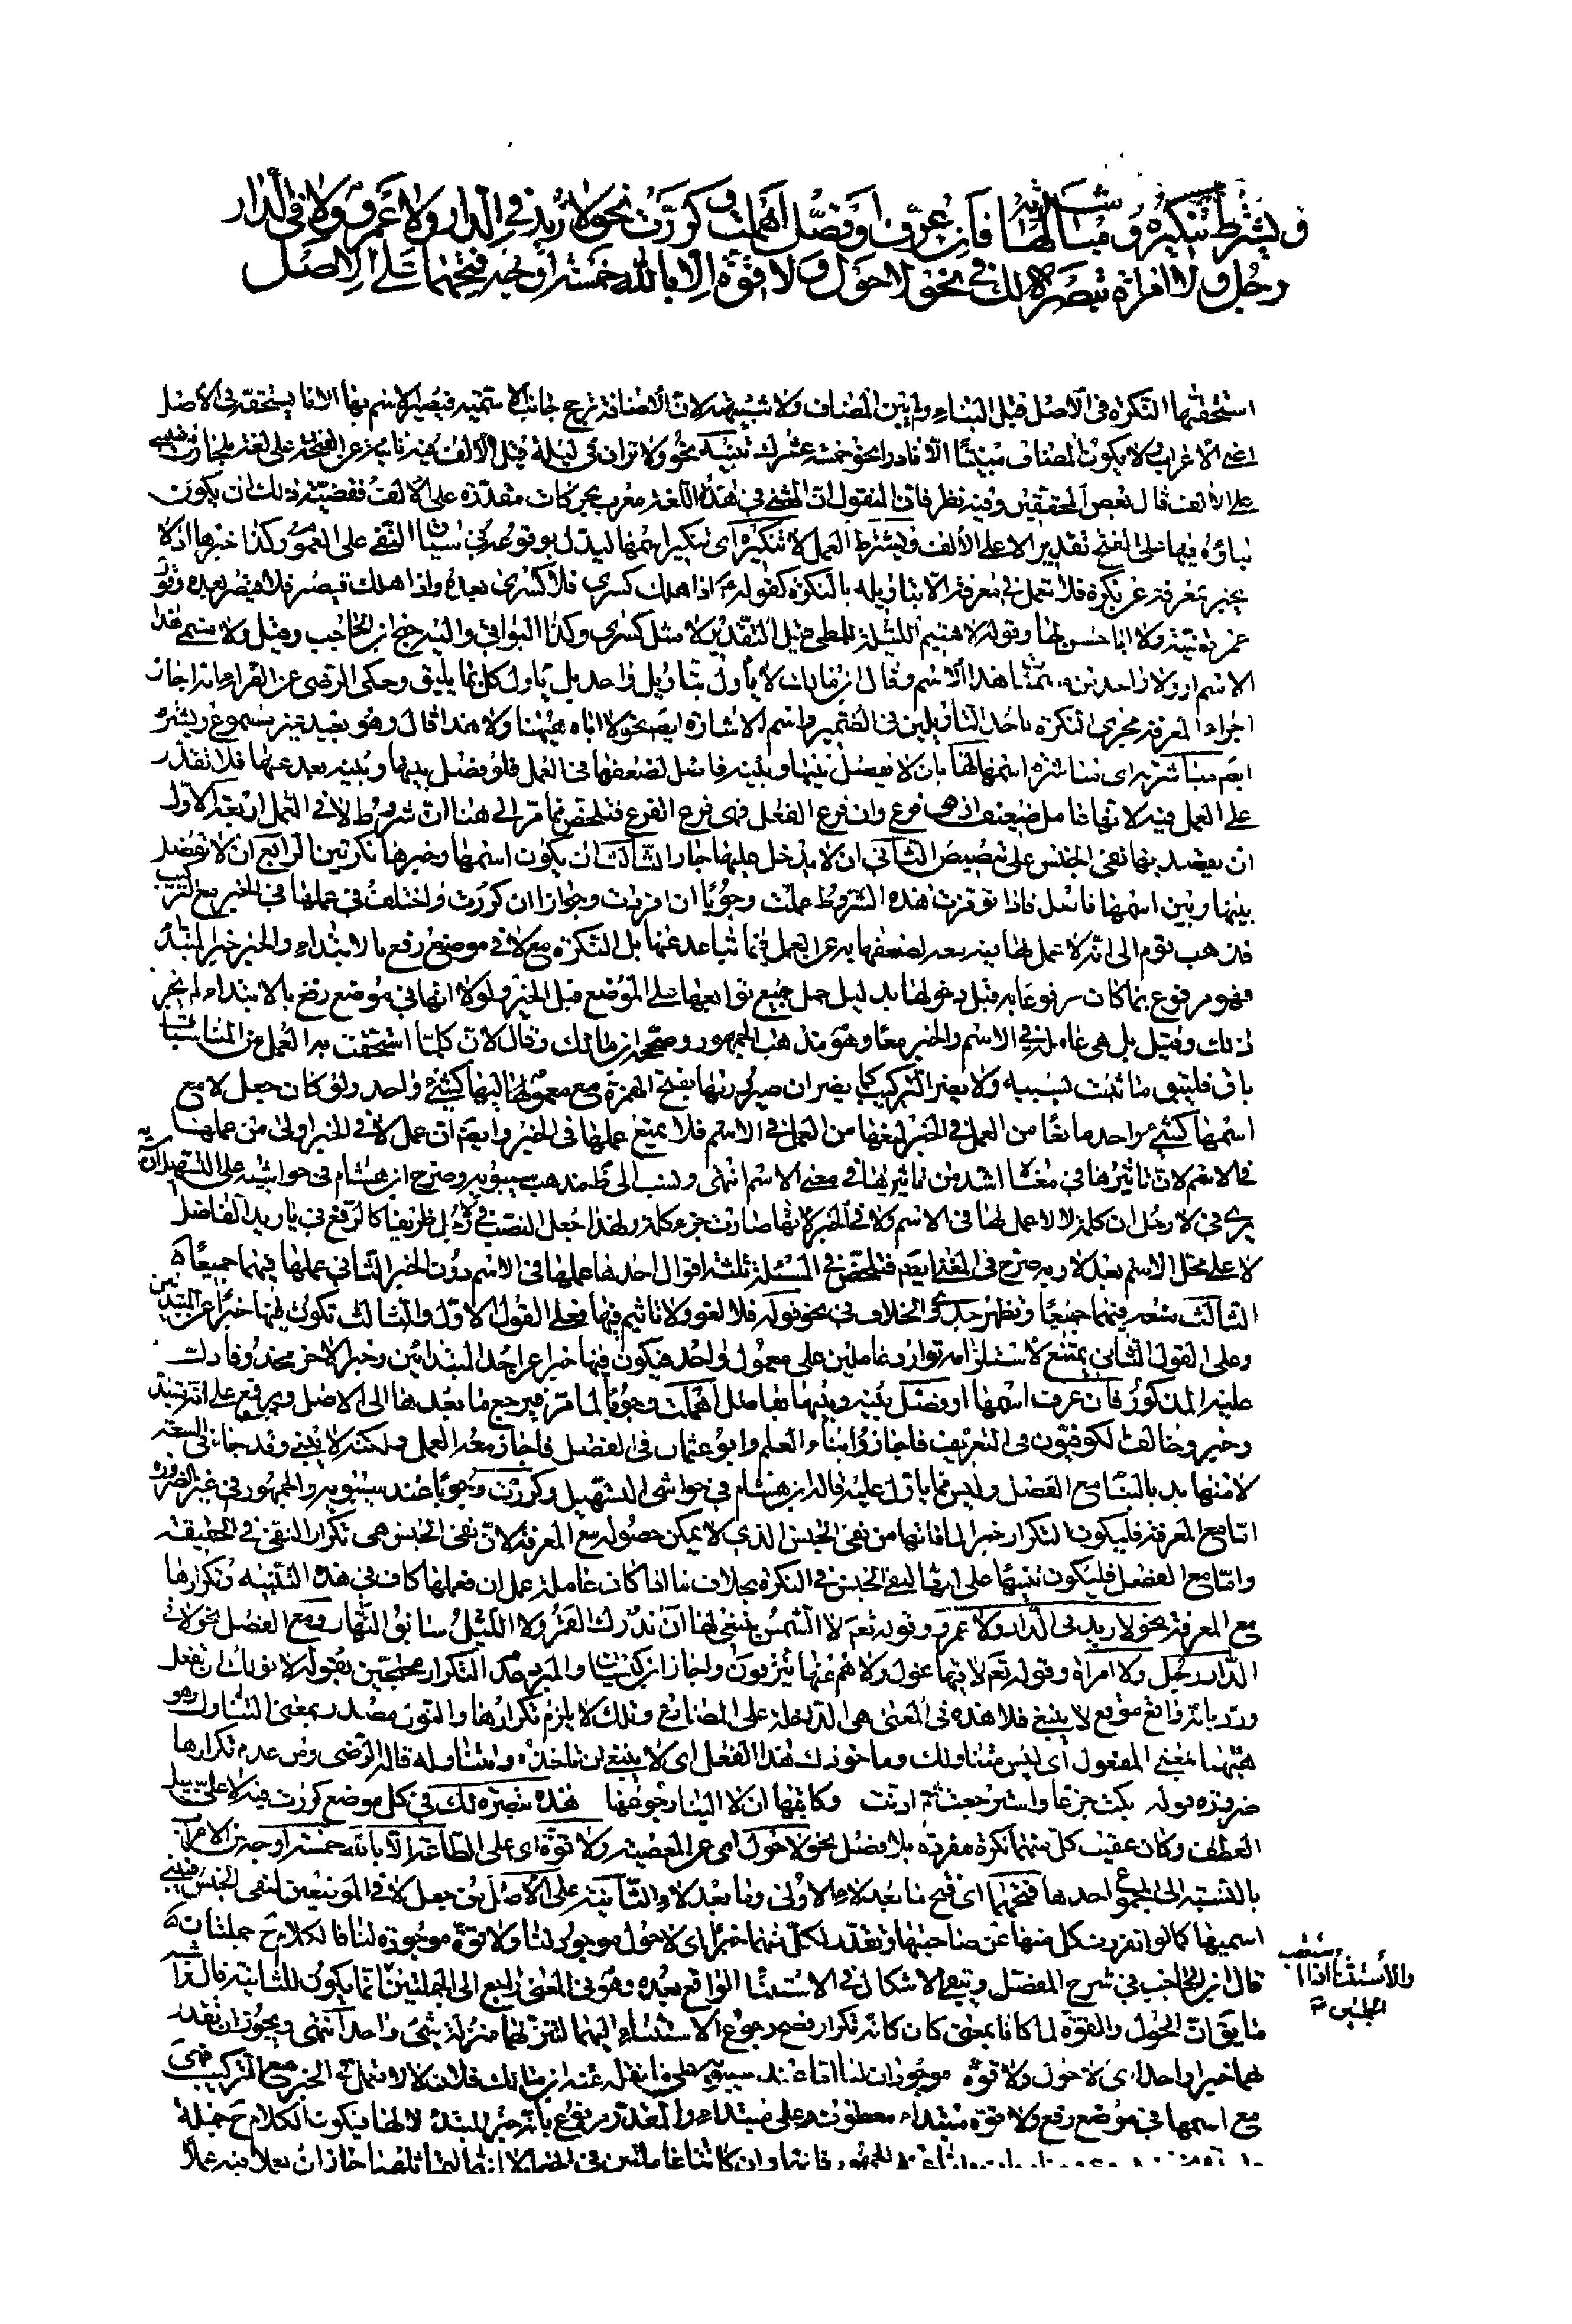 ويشترط تنكيره ومباشرته لها فان عرف او فصل اهملت وكررت نحو لا زيد في الدار ولا عمرو ولا في الدار
رجل ولا امراة تبصرة لك في نحو لا حول ولا قوة الا بالله خمسة اوجه فتحهما على الاصل
استحقتها النكرة في الاصل قبل البناء ولم يبن المضاف ولا شبيهه لان الاضافة ترجح جانب الاسمية فيصير الاسم بها الى ما يستحقه في الاصل
اعني الاعراب ولا يكون المضاف مبنيا الا نادرا نحو خمسة عشرك تنبيه نحو ولا تران في ليلة قيل الالف فيه نائبة عن الفتحة على لغة
على الالف قال بعض المحققين وفيه نظر فان المنقول ان المثنى في هذه اللغة معرب بحركات مقدرة على الالف فقضية ذلك ان يكون
بناؤه فيها على الفتح تقديرا لا على الالف ويشترط لعمل لا تنكيره اي تنكير اسمها ليدل بوقوعه في سياق النفي على العموم وكذا خبرها اذ لا
يخبر بمعرفة عن نكرة فلا تعمل في معرفة الا بتاويله بالنكرة كقوله اذا هلك كسرى فلا كسرى بعده واذا هلك قيصر فلا قيصر بعده وقول
عمر قضية ولا ابا حسن لها وقوله لا هيثم الليلة للمطي قيل التقدير لا مثل كسرى وكذا البواقي واليه جنح ابن الحاجب وقيل ولا مسمى هذا
الاسم او ولا واحد من مسميات هذا الاسم وقال ابن مالك لا ياول بتاويل واحد بل ياول كل بما يليق وحكى الرضي عن الفراء انه اجاز
اجراء المعرفة مجرى النكرة باحد التاويلين في الضمير واسم الاشارة ايضم نحو لا اياه ههنا ولا هذا قال وهو بعيد غير مسموع ويشترط
ايضم مباشرته اي مباشرة اسمها لها بان لا يفصل بينها وبينه فاصل لضعفها في العمل فلو فصل بينها وبينه بعد عنها فلا تقدر
على العمل فيه لانها عامل ضعيف اذ هي فرع وان فرع الفعل فهي فرع الفرع فتلخص مما مر الى هنا ان شروط لا في العمل اربعة الاول
ان يقصد بها نفي الجنس على تنصيص الثاني ان لا يدخل عليها جار الثالث ان يكون اسمها وخبرها نكرتين الرابع ان لا يفصل
بينها وبين اسمها فاصل فاذا توفرت هذه الشروط عملت وجوبا ان افردت وجوازا ان كررت واختلف في عملها في الخبر مع التركيب
فذهب قوم الى انه لا عمل لها فيه بعد لضعفها به عن العمل فيما تباعد عنها بل النكرة مع لا في موضع رفع بالابتداء والخبر خبر المبتدا
فهو مرفوع بما كان مرفوعا به قبل دخولها بدليل حمل جميع توابعها على الموضع قبل الخبر ولولا انها في موضع رفع بالابتداء لم يجز
ذلك وقيل بل هي عاملة في الاسم والخبر معا وهو مذهب الجمهور وصححه ابن مالك وقال لان كلما استحقت به العمل من المناسبات
باق فليبق ما ثبت بسببه ولا يضر التركيب كما يضر ان صيرورتها بفتح الهمزة مع معمولها كشيء واحد ولو كان جعل لا مع
اسمها كشيء واحد مانعا من العمل في الخبر لمنعها من العمل في الاسم فلا يمنع عملها في الخبر وايضم ان عمل لا في الخبر اولى من عملها
في الاسم لان تاثيرها في معناه اشد من تاثيرها في معنى الاسم انتهى ونسب الى ظ مذهب سيبويه وصرح ابن هشام في حواشيه على التسهيل انه
يرى في لا رجل ان كلمة لا لا عمل لها في الاسم ولا في الخبر لانها صارت جزء كلمة ولهذا جعل النصب في لا رجل ظريفا كالرفع في يا زيد الفاضل
لا على محل الاسم بعد لا وبه صرح في المغني ايضم فتلخص في المسئلة ثلثة اقوال احدها عملها في الاسم دون الخبر الثاني عملها فيهما جميعا
الثالث عدمه فيهما جميعا وتظهر جدوى الخلاف في نحو قوله فلا لغو ولا تاثيم فيها فعلى القول الاول والثالث تكون فيها خبرا عن المبتدئين
وعلى القول الثاني يمتنع لاستلزامه توارد عاملين على معمول واحد فيكون فيها خبرا عن احد المبتدئين وخبر الاخر محذوفا دلت
عليه المذكور فان عرف اسمها او فصل بينه وبينها بفاصل اهملت وجوبا لما مر فيرجع ما بعدها الى الاصل ويرفع على انه مبتدا
وخبر وخالف الكوفيون في التعريف فاجازوا بناء العلم وابو عثمان في الفصل فاجاز معه العمل ولكنه لا يبنى وقد جاء في السعة
لا منها بد بالبناء مع الفصل وليس مما ياول عليه قاله ابن هشام في حواشي التسهيل وكررت وجوبا عند سيبويه والجمهور في غير الضرورة
اما مع المعرفة فليكون التكرار جبرا لما فاتها من نفي الجنس الذي لا يمكن حصوله مع المعرفة لان نفي الجنس هي تكرار النفي في الحقيقة
واما مع الفصل فليكون تنبيها على انها لنفي الجنس في النكرة بخلاف ما اذا كان عاملة عمل ان فعملها كاف في هذه التنبيه وتكرارها
مع المعرفة نحو لا زيد في الدار ولا عمرو وقوله تعم لا الشمس ينبغي لها ان تدرك القمر ولا الليل سابق النهار ومع الفصل نحو لا في
الدار رجل ولا امراة وقوله تعم لا فيها غول ولا هم عنها ينزفون واجاز ابن كيسان والمبرد عدم التكرار محتجين بقوله لا نولك ان تفعل
ورد بانه واقع موقع لا ينبغي فلا هذه في المعنى هي الداخلة على المضارع وتلك لا يلزم تكرارها والنول مصدر بمعنى التناول وهو
ههنا بمعنى المفعول اي ليس متناولك وماخوذك هذا الفعل اي لا ينبغي ان تاخذه وتتناوله قاله الرضي ومن عدم تكرارها
ضرورة قوله بكت جزعا واسترجعت ثم اذنت ركائبها ان لا الينا رجوعها هذه تبصرة لك في كل موضع كررت فيه لا على سبيل
العطف وكان عقيب كل منهما نكرة مفردة بلا فصل نحو لا حول اي عن المعصية ولا قوة اي على الطاعة الا بالله خمسة اوجه من الاعراب
بالنسبة الى المجموع احدها فتحهما اي فتح ما بعد لا الاولى وما بعد لا الثانية على الاصل من جعل لا في الموضعين لنفي الجنس فيبنى
اسميها كما لو انفردت كل منها عن صاحبتها وتقدر لكل منهما خبرا اي لا حول موجود لنا ولا قوة موجودة لنا فالكلام ح جملتان
قال ابن الحاجب في شرح المفصل ويبقى الاشكال في الاستثناء الواقع بعده وهو في المعنى راجع الى الجملتين
ما يق ان الحول والقوة لما كانا بمعنى كان كانه تكرار فصح رجوع الاستثناء اليهما لتنزلهما منزلة شيء واحد انتهى ويجوز ان تقدر
لهما خبرا واحدا اي لا حول ولا قوة موجودان لنا اما عند سيبويه على ما نقله عنه ابن مالك فلان لا لا تعمل في الخبر مع التركيب فهي
مع اسمها في موضع رفع ولا قوة مبتداء معطوف على مبتداء والمقدر مرفوع بانه خبر المبتدا لا لها فيكون الكلام ح جملة
والاستثناء اذا تعقب
الجملتين